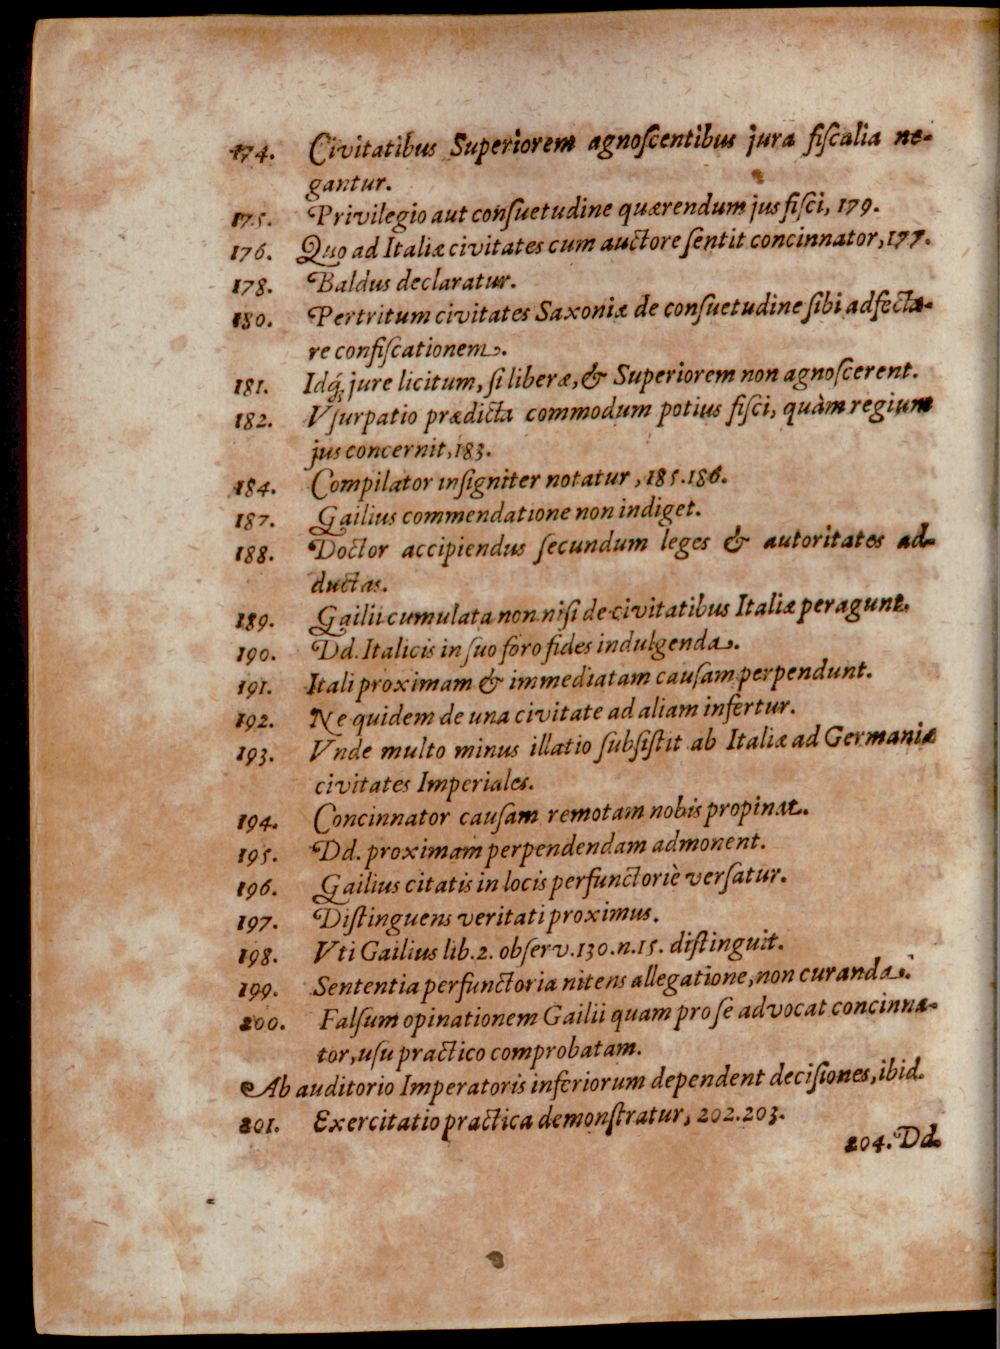 174. Civitatibus Superiorem agnoſcentibus jura fiſcalia ne-
gantur.
175. Privilegio aut conſuetudine quærendum jus fiſci, 179.
176. Quo ad Italiæ civitates cum auctore ſentit concinnator, 177.
178. Baldus declaratur.
180. Pertritum civitates Saxoniæ de conſuetudine ſibi adfecta-
re confiſcationem.
181. Idq́; jure licitum, ſi liberæ, & Superiorem non agnoſcerent.
182. Vſurpatio prædicta commodum potius fiſci, quàm regium
jus concernit, 183.
184. Compilator inſigniter notatur, 185.186.
187. Gailius commendatione non indiget.
188. Doctor accipiendus ſecundum leges & autoritates ad-
ductas.
189. Gailii cumulata non niſi de civitatibus Italiæ peragunt.
190. Dd. Italicis in ſuo foro fides indulgenda.
191. Itali proximam & immediatam cauſam perpendunt.
192. Ne quidem de una civitate ad aliam infertur.
193. Vnde multo minus illatio ſubſiſtit ab Italiæ ad Germaniæ
civitates Imperiales.
194. Concinnator cauſam remotam nobis propinat.
195. Dd. proximam perpendendam admonent.
196. Gailius citatis in locis perfunctoriè verſatur.
197. Diſtinguens veritati proximus.
198. Vti Gailius lib.2. obſerv.130.n.15. diſtinguit.
199. Sententia perfunctoria nitens allegatione, non curanda.
200. Falſum opinationem Gailii quam pro ſe advocat concinna-
tor, uſu practico comprobatam.
Ab auditorio Imperatoris inferiorum dependent deciſiones, ibid.
201. Exercitatio practica demonſtratur, 202.203.
204. Dd.